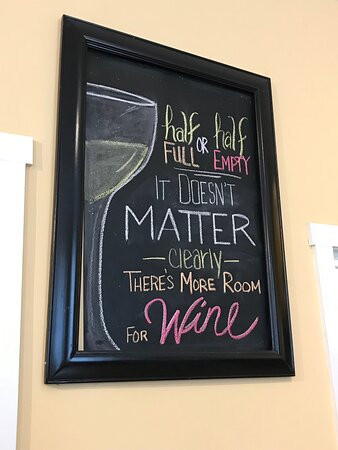 half OR half
FULL EMPTY
IT DOESN'T
MATTER
-clearly-
THERE'S MORE ROOM
FOR Wine